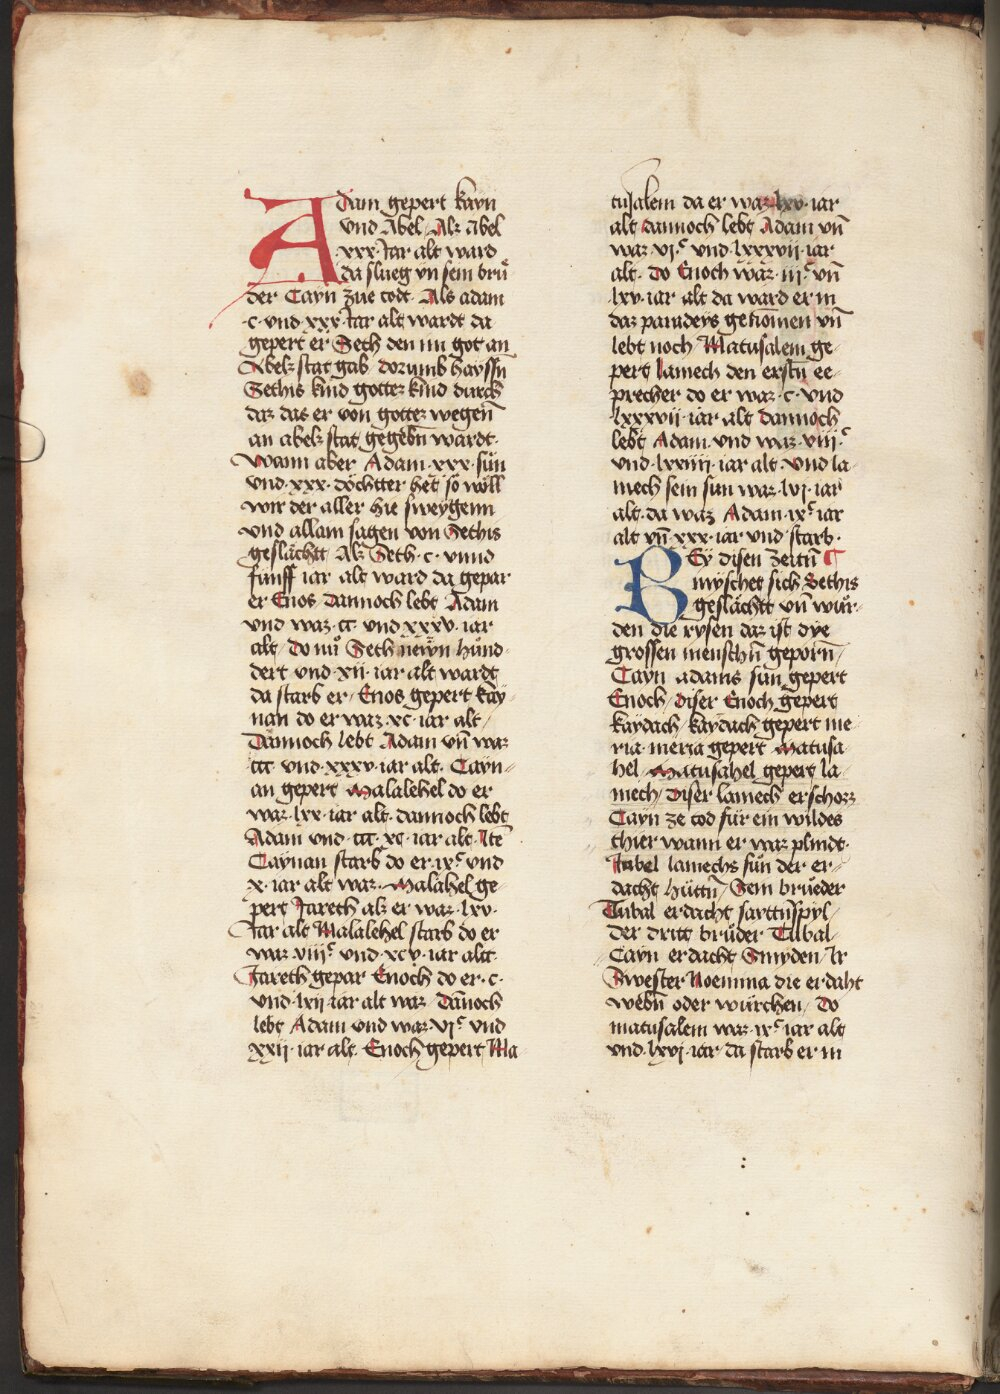 Adam gepert kayn
vnd Abel Alz abel
xxx Jar alt ward
da slueg yn sein brů
der Cayn zue todt. Als adam
·c· vnd xxx· Jar alt wardt da
gepert er Seth den im got an
Abelz stat gab dorumb hayssn̄
Sethis kind gottez kind durch
daz das er von gottez wegen̄
an abelz stat gegebn̄ wardt·
Wann aber Adam xxx· sün
vnd xxx· döchtter het so wöll
wir der aller hie sweygenn
vnd allain sagen von Sethis
geslächtt Alz Seth ·c· vnnd
fünff iar alt ward da gepar
er Enos dannoch lebt Adam
vnd waz cc vnd xxxv· iar
alt· Do nů Seth newn hůnd-
dert vnd xii· iar alt wardt
da starb er· Enos gepert kay-
nan do er waz xc· iar alt/
Dannoch lebt Adam vn̄ waz
ccc vnd xxxv· iar alt· Cayn-
an gepert Malalehel do er
waz lxx· iar alt· dannoch lebt
Adam vnd ccc xc· iar alt Ite̅
Caynan starb do er ixᶜ vnd
x· iar alt waz· Malahel ge-
pert Jareth alz er waz lxv·
Jar alt Malalehel starb do er
waz viiiᶜ vnd xcv· iar altt·
Jareth gepar Enoch do er ·c·
vnd lxij iar alt waz Dan̄och
lebt Adam vnd waz viᶜ vnd
xxij· iar alt· Enoch gepert Ma-
tusalem da er waz lxv· iar
alt dannoch lebt Adam vn̄
waz viᶜ vnd lxxxvii iar
alt· Do Enoch waz iiiᶜ vn̄
lxv· iar alt da ward er in
daz paradeys genom̄en vn̄
lebt noch Matusalem ge-
pert lamech den erstn̄ ee-
precher do er waz ·c· vnd
lxxxvii· iar alt dannoch
lebt Adam vnd waz viiiᶜ
vnd lxxiiii· iar alt· vnd la-
mech sein sun waz lvi· iar
alt· da waz Adam ixᶜ iar
alt vn̄ xxx· iar vnd starb·
BEy disen zeittn̄
myschet sich Sethis
geslächtt vn̄ wür-
den die rysen daz ist dye
grossen menschn̄ geporn̄/
Cayn adams sun gepert
Enoch/ Diser Enoch gepert
kaydach/ kaydach gepert me-
ria· meria gepert Matusa-
hel/ Matusahel gepert la-
mech/ Diser lamech erschozz
Cayn ze tod für ein wildes
thier wann er waz plindt·
Jabel lamechs sün der er-
dacht hüttn̄/ Sein brueder
Tubal erdacht sarttn̄spyl/
der dritt brůder Tubal-
Cayn erdacht Smyden/ Ir
Swester Noemma die erdaht
webn̄ oder würchen/ Do
matusalem waz ixᶜ iar alt
vnd lxvi· iar· da starb er in